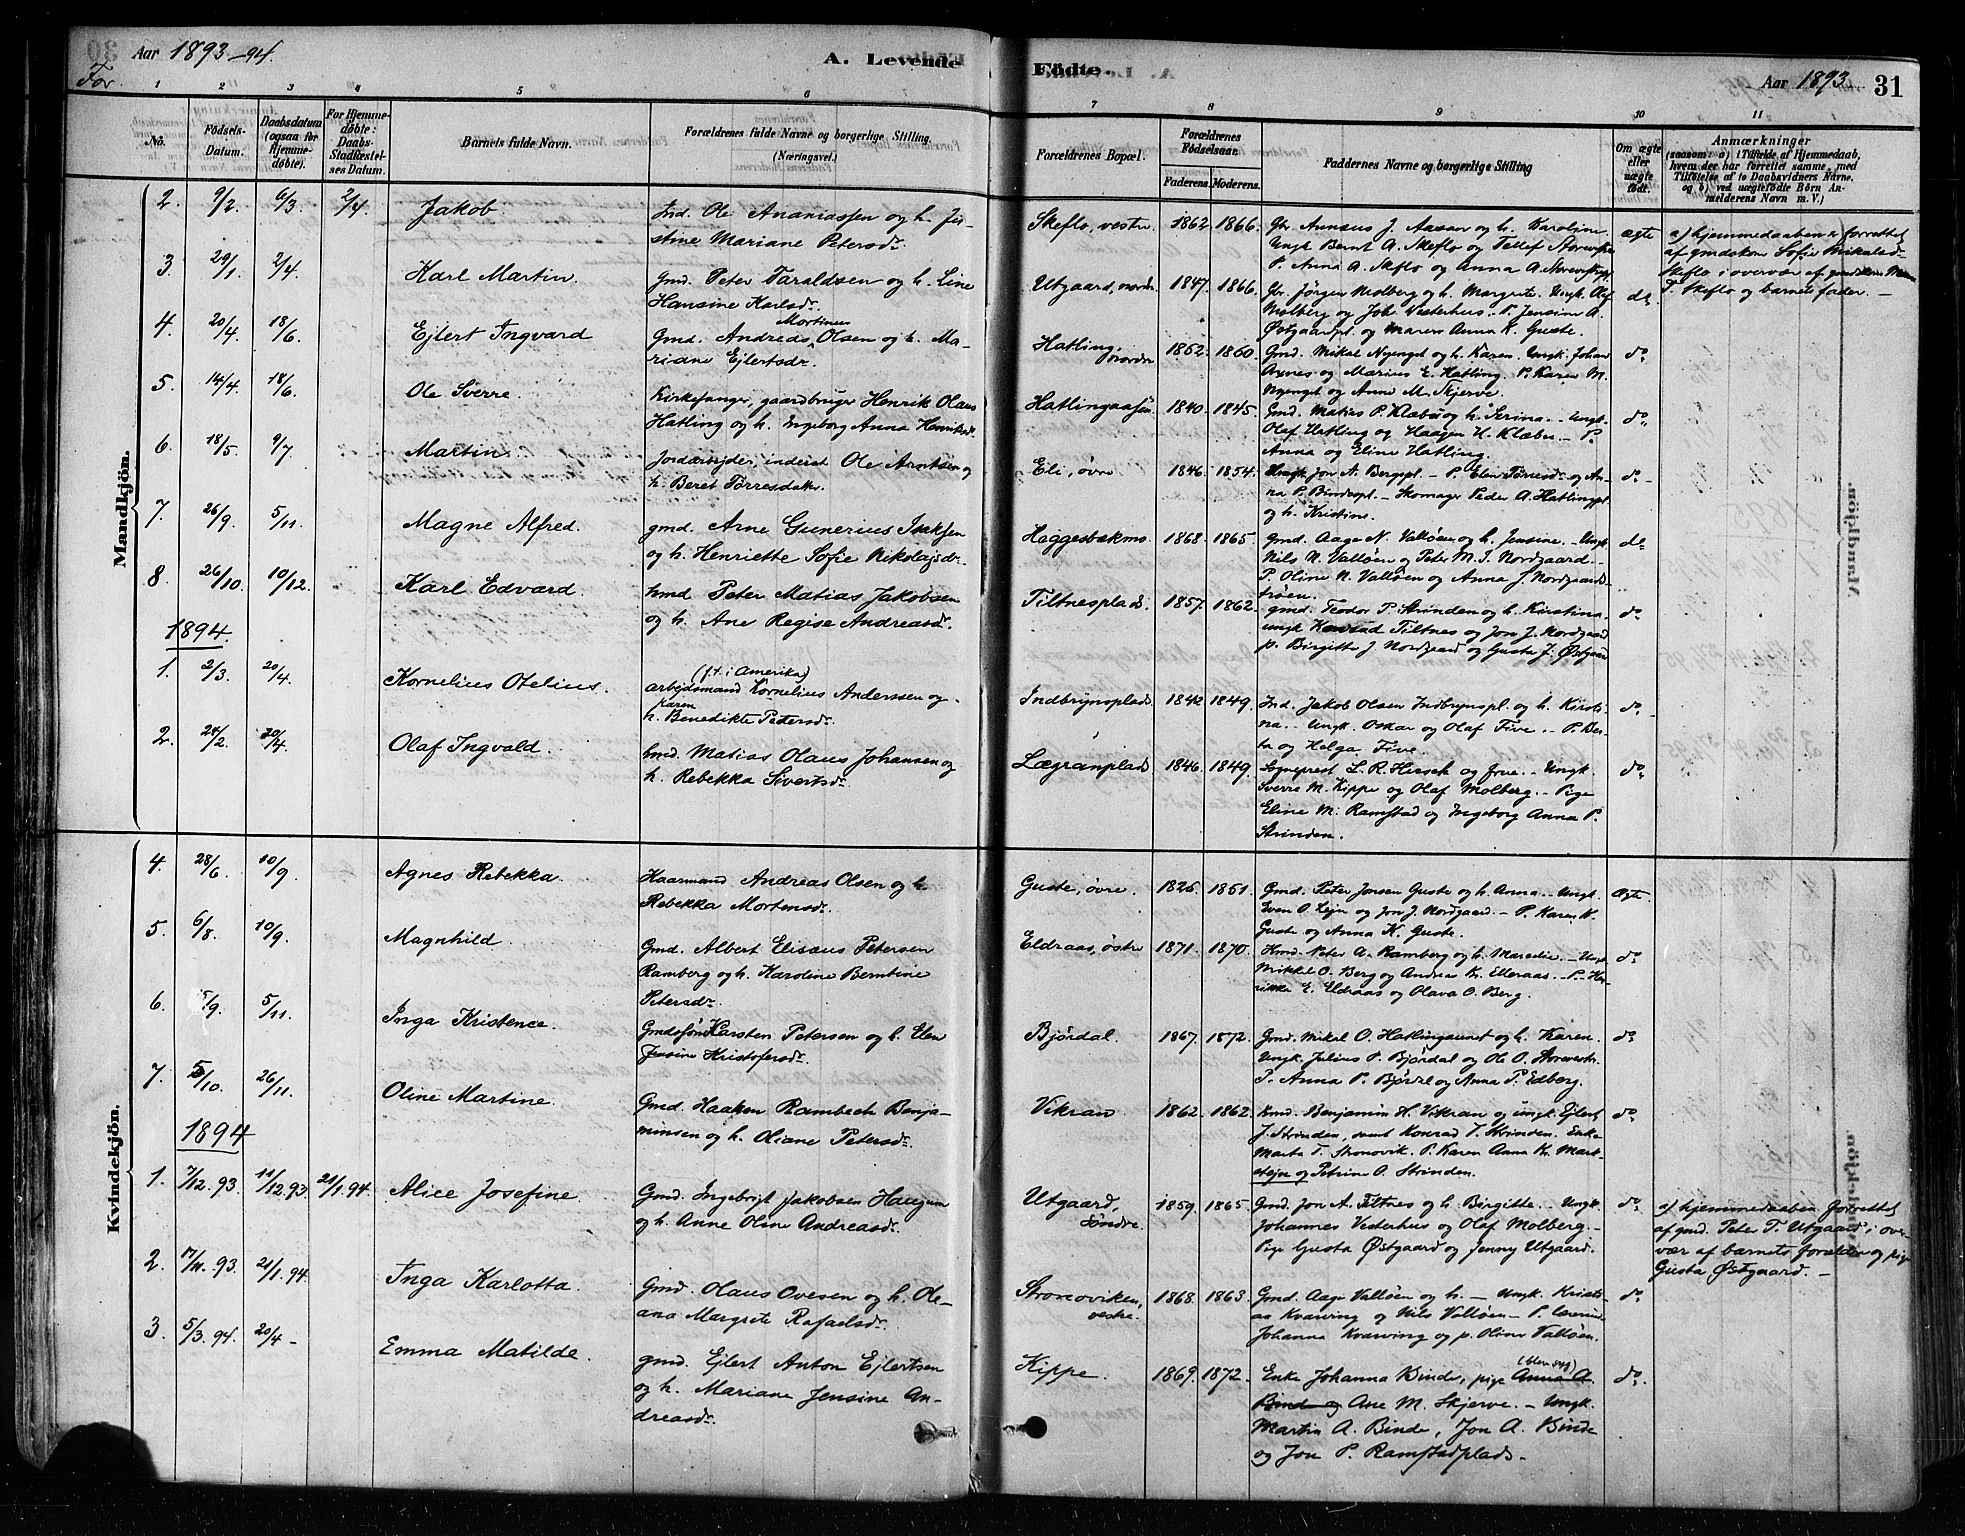 30 Aar 1893-94. A. Levende Fødte. Aar 1893 31
For
1 2 3 4 5 6 7 8 9 10 11
No.
Fødsels-Datum.
Daabsdatum (ogsaa for Hjemmedøbte).
For Hjemmedøbte: Daabs-Stadfæstelses Datum.
Barnets fulde Navn.
Forældrenes fulde Navne og borgerlige Stilling. (Næringsvei.)
Forældrenes Bopæl.
Forældrenes Fødselsaar.
Faderens. Moderens.
Faddernes Navne og borgerlige Stilling
Om ægte eller uægte født.
Anmærkninger
(saasom: a) i Tilfælde af Hjemmedaab, hvem der har forrettet samme, med Tilføielse af to Daabsvidners Navne, og b) ved uægtefødte Børn Anmelderens Navn m. V.)
Mandkjön.
2. 9/2 6/3 2/4 Jakob
Ind. Ole Ananiassen og h. Jensine Mariane Petersdr.
Skeflo, vestre 1862 1866.
Gbr. Annæus J. Aasan og h. Karoline.
Ungk Bernt A. Skeflo og Tellef
P. Anna A. Skeflo og Anna A.
ægte
a) hjemmedaaben er forrettet
af gmdskone Sofie Mikalsd.
Skeflo i overvær af
T. Skeflo og barnets fader. –
3. 29/1. 2/4. Karl Martin.
Gmd. Peter Taraldsen og h. Line
Hansine Karlsdr.
Utgaard, nordre 1847. 1866.
Gbr. Jørgen Molberg og h. Margrete. Ungk. Olaf
Molberg og Joh. Vesterhus. – P. Jensine A.
Østgaardspl. og Maren Anna K. Guste.
do.
4. 20/4 18/6. Ejlert Ingvard
Gmd. Andreas Mortinus Olsen og h. Mariane
Ejlertsdr.
Hatling, nordre 1862. 1860.
Gmd. Mikal Nyenget og h. Karen. Ungk. Johan
Axnes og Marius E. Hatling. P. Karen M.
Nyenget og Anne M. Skjerve.
do
5. 14/4 18/6 Ole Sverre.
Kirkesanger, gaardbruger Henrik Olaus
Hatling og h. Ingeborg Anna Henriksdr.
Hatlingaasen 1840. 1845.
Gmd. Matias P. Klæbu og h. Serina. – Ungk.
Olaf Hatling og Haagen H. Klæbu – P.
Anna og Eline Hatling.
do.
6. 18/5 9/7. Martin
Jordarbejder, inderst Ole Arntsen og
h. Beret Torresdatter.
Eli, øvre. 1846. 1854.
Ungk Jon N. Bergspl. – P. Elen Torresdr. og Anna
P. Bindespl. – Skomager Peder A. Hatlingpl.
og h. Kristine.
do –
7. 26/9. 5/11. Magne Alfred.
gmd. Arne Gunerius Isaksen
og h. Henriette Sofie Nikolajsdr.
Heggesbækmo. 1868. 1865
Gmd. Aage N. Valløen og h. Jensine. – Ungk.
Nils N. Valløen og Peter M. J. Nordgaard. –
P. Oline N. Valløen og Anna J. Nordgaard
do
8. 26/10. 10/12. Karl Edvard.
hmd Peter Matias Jakobsen
og h. Ane Regise Andreasdr.
Tiltnesplads. 1857. 1862.
gmd. Teodor P. Strinden og h. Kirstina
ungk Konrad Tiltnes og Jon J. Nordgaard
p. Birgitte J Nordgaard og Gusta J. Østgaard
do
1894.
1. 2/3. 20/4. Kornelius Otelius.
(f.t. i Amerika)
arbejdsmand Kornelius Anderssen og
h. Karen Benedikte Petersdr.
Indbrynsplads 1842 1849.
Ind. Jakob Olsen Indbrynspl. og h. Kirstina.
– Ungk. Oskar og Olaf Five. – P. Berta
og Helga Five.
do.
2. 24/2. 20/4. Olaf Ingvald.
hmd. Matias Olaus Johansen og
h. Rebekka Sivertsdr.
Lægranplads 1846. 1849.
Sogneprest L. R. Hersch og frue. – Ungk.
Sverre M. Kippe og Olaf Molberg. – Pige
Eline M. Ramstad og Ingeborg Anna P.
Strinden.
do.
Kvindekjön.
4. 28/6. 10/9. Agnes Rebekka.
Haarmand Andreas Olsen og h
Rebekka Mortensdr.
Guste, øvre. 1825. 1851.
Gmd. Peter Jonsen Guste og h. Anna. – Ungk.
Even O. Lejn og Jon J. Nordgaard. – P. Karen K.
Guste og Anna K. Guste.
Ægte.
5. 6/8. 10/9. Magnhild.
Gmd. Albert Elisæus Petersen
Ramberg og h. Karoline Berntine
Petersdr.
Eldraas, østre 1871. 1870.
Kmd. Peter A. Ramberg og h. Marselie. – Ungk
Mikkel O. Berg og Andreas Kr. Elleraas. – P. Henrikke
E. Eldraas og Olava O. Berg.
do
6. 5/9. 5/11. Inga Kristence.
Gmdsøn Karsten Petersen og h. Elen
Jensine Kristofersdr.
Bjørdal. 1867. 1872.
Gmd. Mikal O. Hatlingaunet og h. Karen.
Ungk. Julius P. Bjørdal og Ole O.
P. Anna P. Bjørdal og Anna P. Edberg.
do
7. 5/10. 26/11. Oline Martine.
Gmd. Haaken Rambech Benjaminsen
og h. Oliane Petersdr.
Vikran. 1862 1862.
Kmd. Benjamin H. Vikran og ungk. Ejlert
J. Strinden, samt Konrad T. Strinden. Enke
Marta T. Stronovik. P. Karen Anna Kr. Markstejn
og Petrine O. Strinden.
do
1894
1. 7/12.93. 11/12.93. 21/1.94. Alice Josefine
Gmd. Ingebrigt Jakobsen Haugan
og h. Anne Oline Andreasdr.
Utgaard, søndre 1859. 1865.
Gmd. Jon A. Tiltnes og h. Birgitte. – Ungk.
Johannes Vesterhus og Olaf Molberg. –
Pige Gusta Østgaard og Jenny Utgaard.
do.
a) hjemmedaaben forrettet
af gmd. Peter T. Utgaard i overvær
af barnets forældre og pige
Gusta Østgaard. –
2. 17/11.93. 21/1.94. Inga Karlotta.
Gmd. Olaus Ovesen og h. Oleana
Margrete Rafaelsdr.
Stronovikem, vestre. 1868. 1863.
Gmd. Aage Valløen og h. – Ungk. Kristian
Kvarving og Nils Valløen – P. lærerinde
Johanna Kvarving og p. Oline Valløen.
do
3. 5/3.94. 20/4 – Emma Matilde.
gmd. Ejlert Anton Ejlertsen
og h. Mariane Jensine Andreasdr.
Kippe. 1869. 1872.
Enke Johanna Binde, pige Anna A. (blev syg)
Binde og Ane M. Skjerve. – Ungk.
Martin A. Binde, Jon A. Binde
og Jon P. Ramstadplads. –
do.